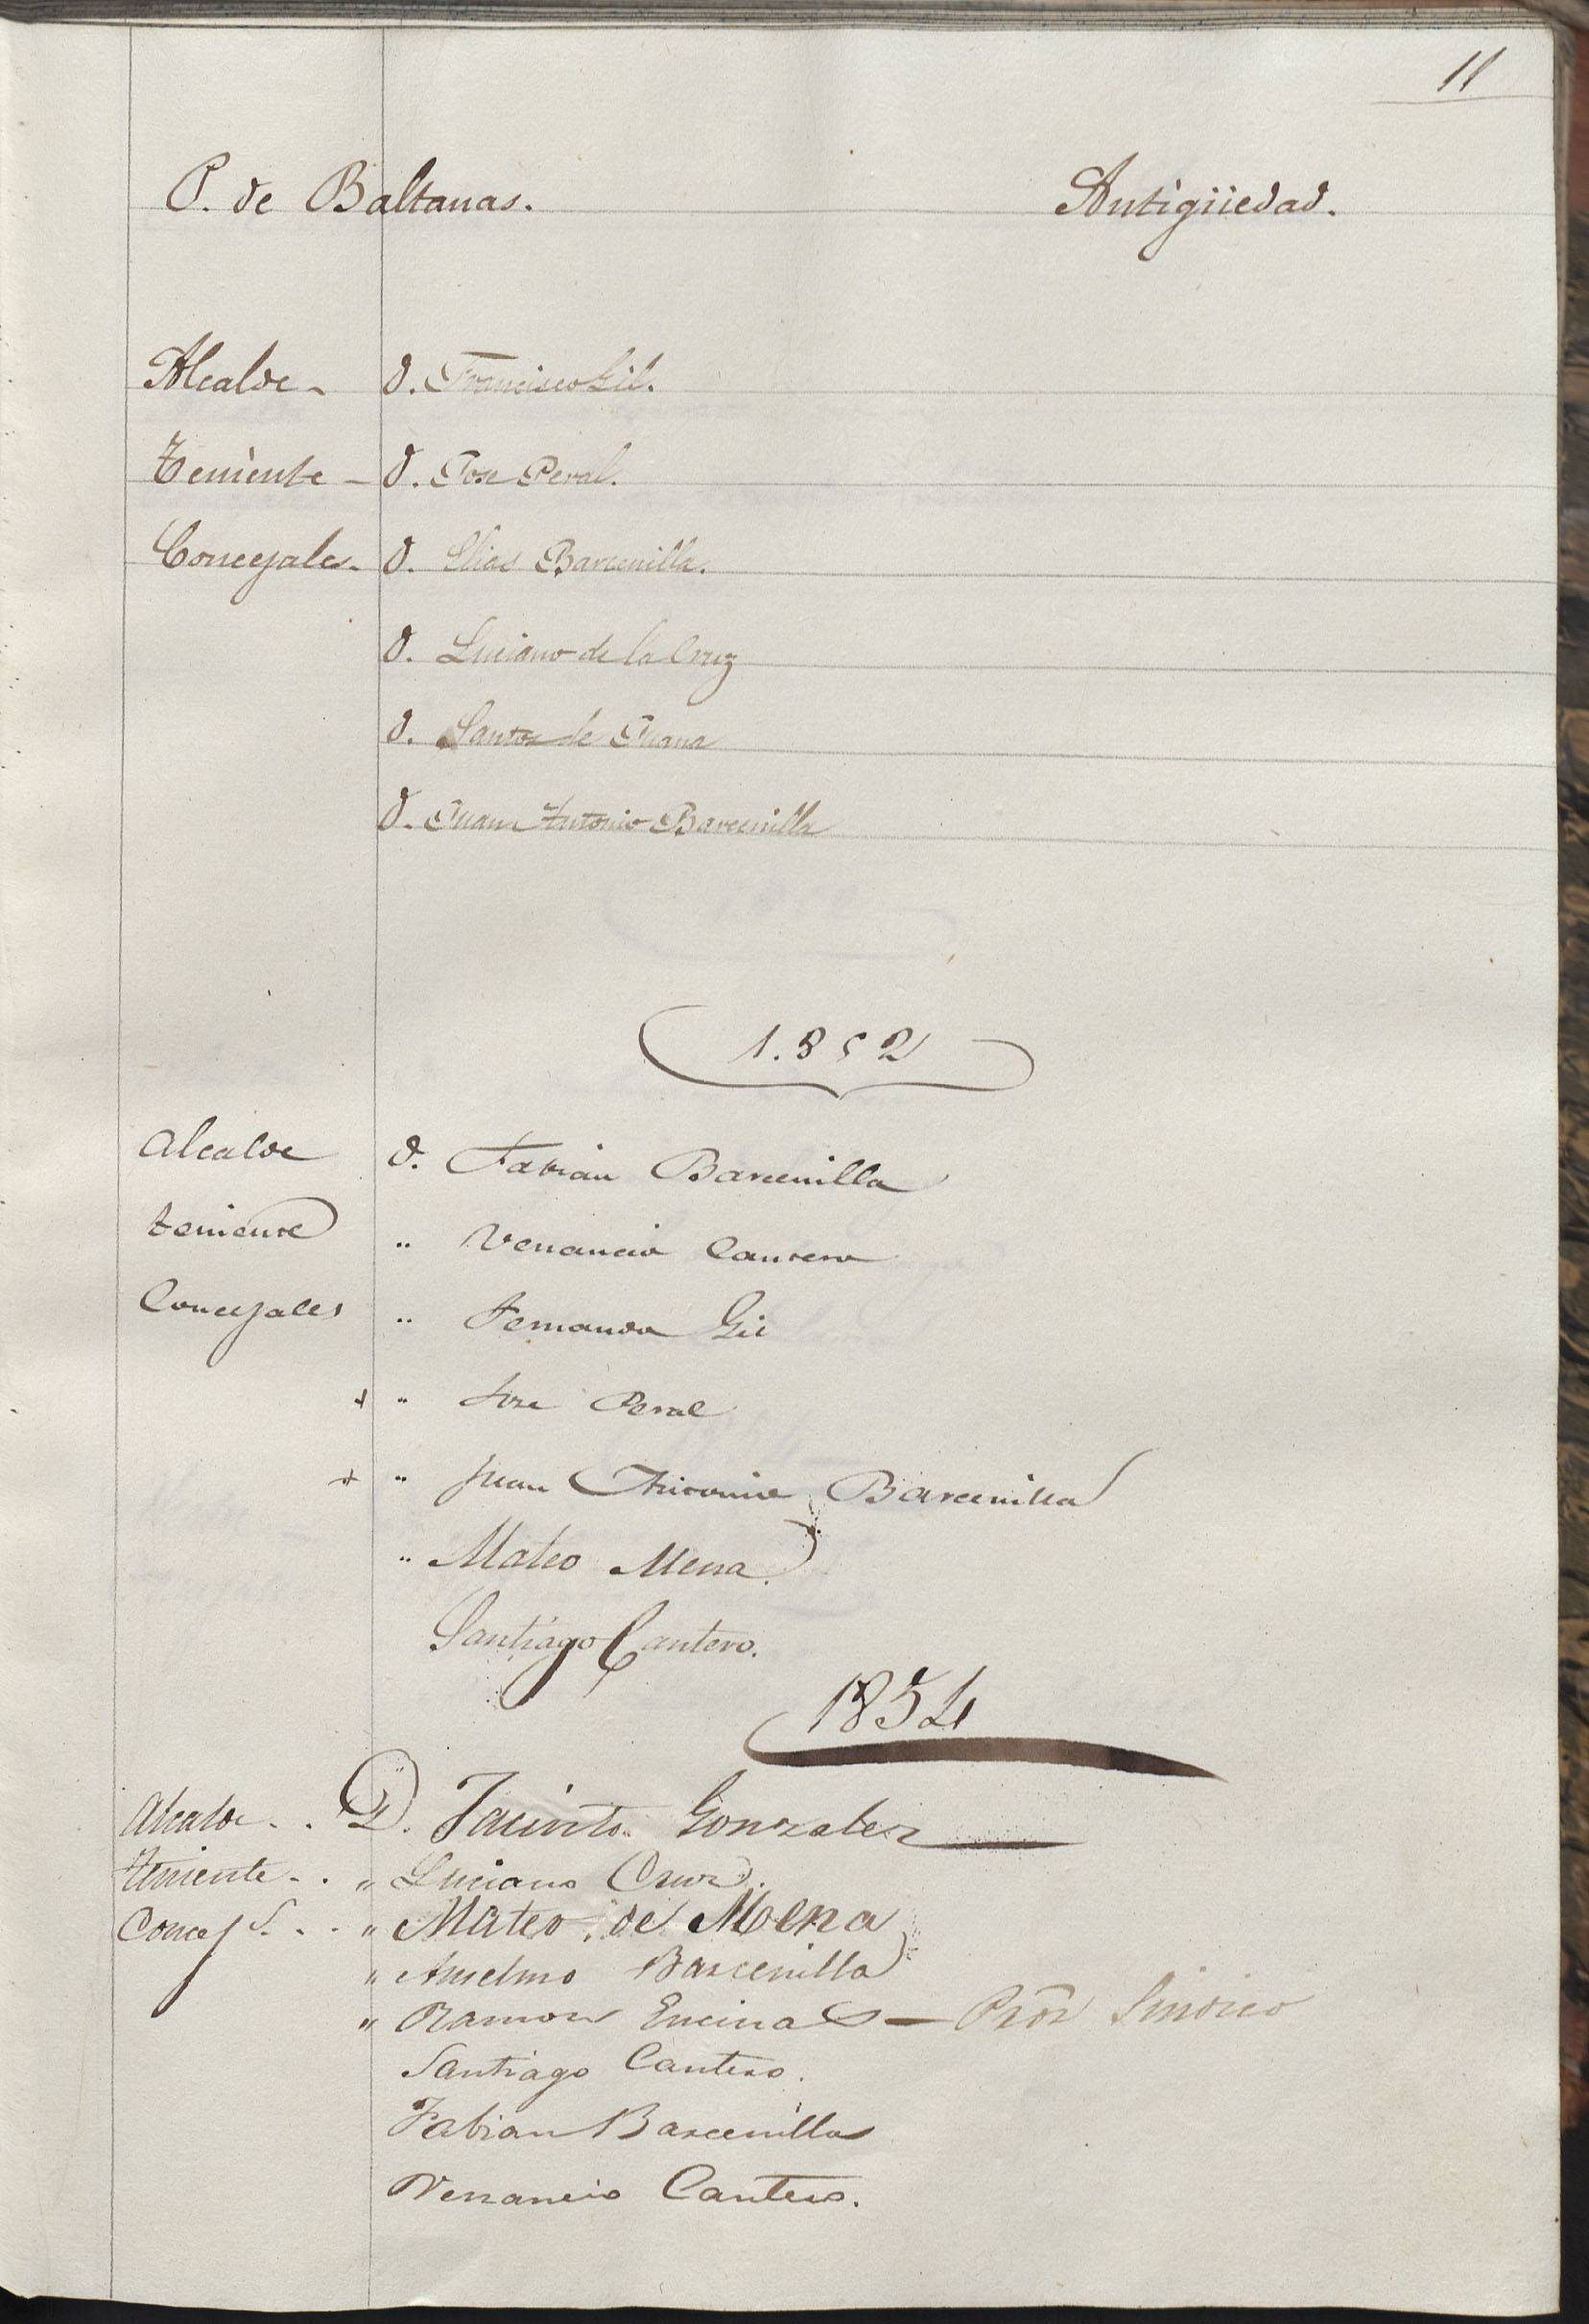 11
P. de Baltanas. Antigüedad.
Alcalde - D. Francisco Gil.
Teniente - D. Jose Peral.
Concejales - D. Elias Barcenilla.
D. Luciano de la Cruz
D. Santos de Juana
D. Juan Antonio Barcenilla
1.852
Alcalde D. Fabian Barcenilla
teniente " Venancio Cantero
Concejales " Fernando Gil
+ " Jose Peral
+ " Juan Antonio Barcenilla
" Mateo Mena.
Santiago Cantero.
1854
Alcalde . . D. Jacinto Gonzalez
Teniente . . " Luciano Cruz.
Concejs. . . " Mateo de Mena
" Anselmo Barcenilla
" Ramon Encinas — Pror Sindico
Santiago Cantero.
Fabian Barcenilla
Venancio Cantero.